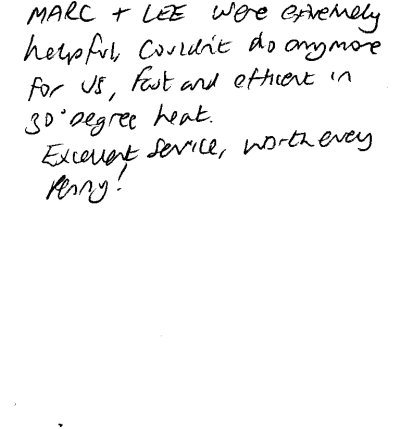 MARC + LEE were extremely
helpful, couldn't do anymore
for us, fast and efficient in
30° degree heat.
Excellent service, worth every
penny!